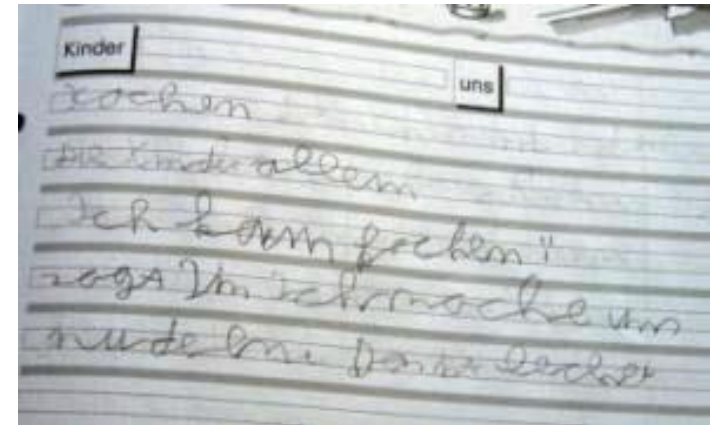 Kinder
uns
kochen
Die Kinder allein
Ich kann kochen"
sagt Ich mache uns
nudeln. lecker